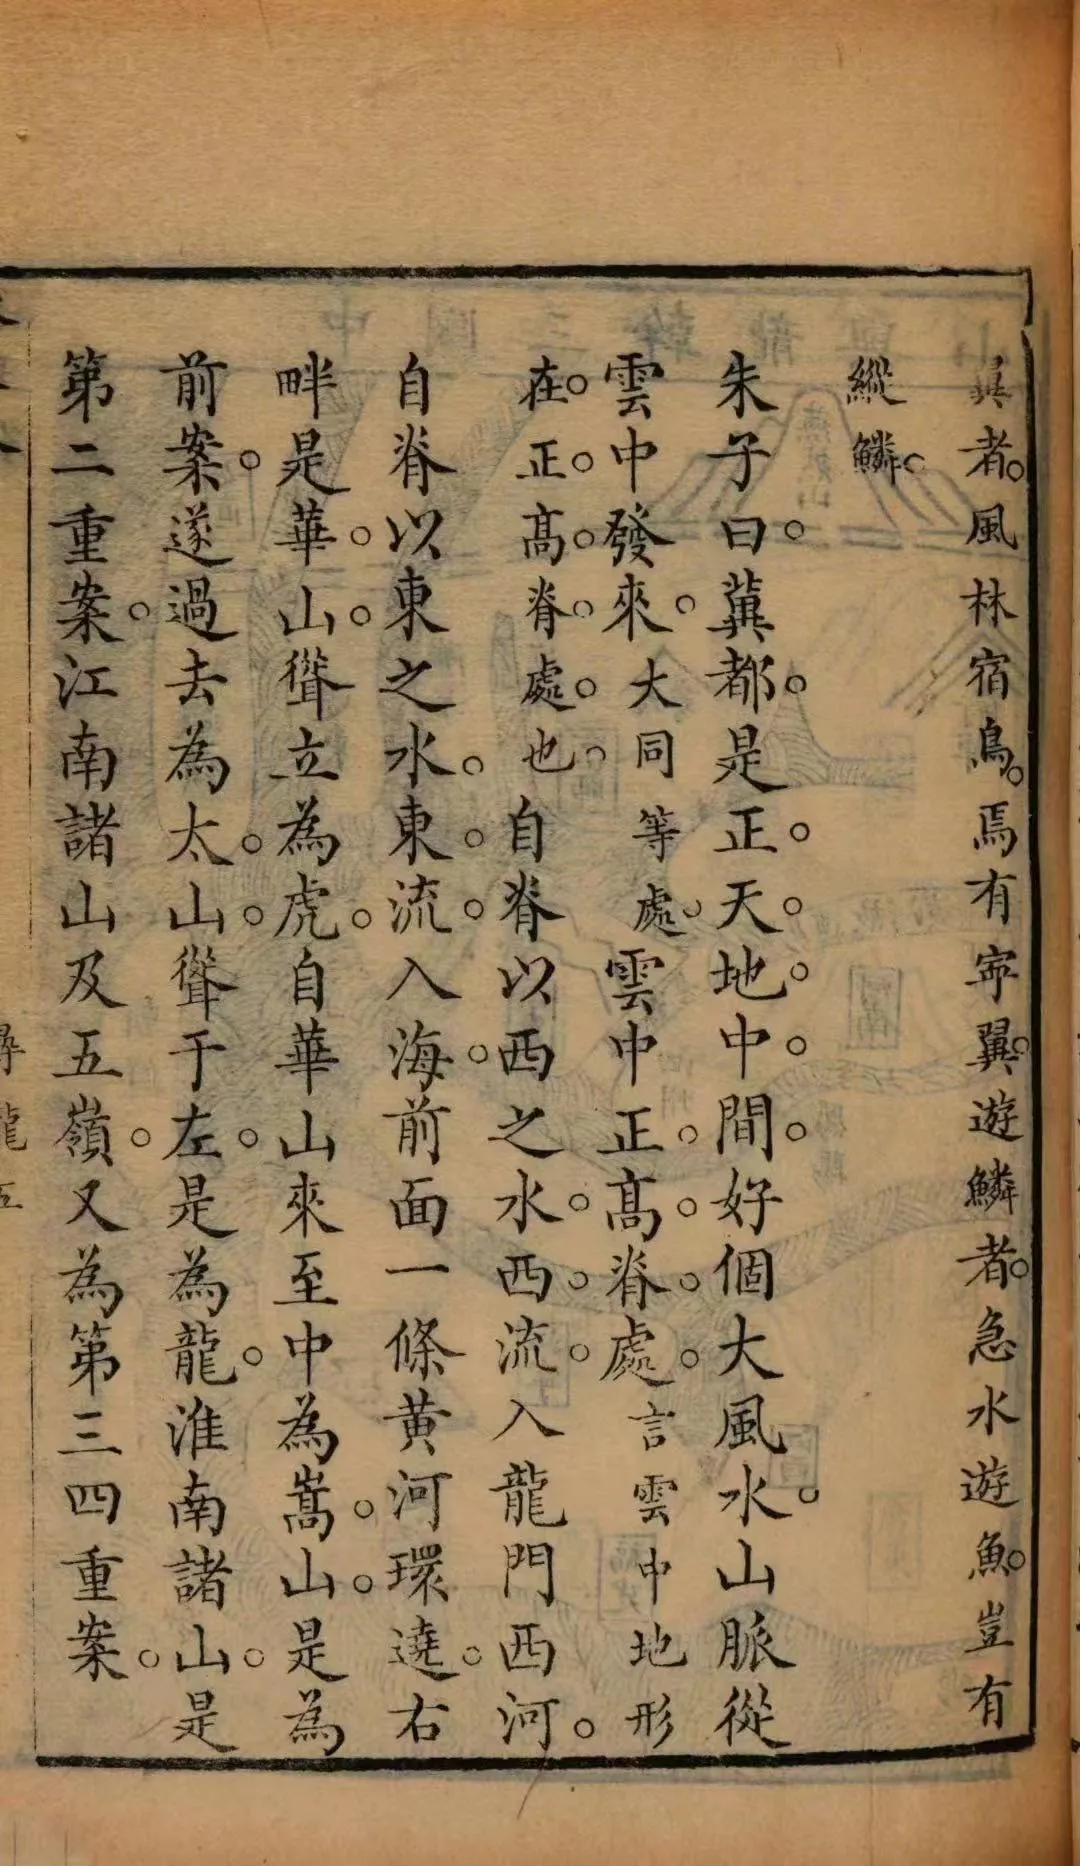 者。風林宿鳥。焉有寕翼。遊鱗者。急水遊魚。豈有
縱鱗。
朱子曰。冀都。是正。天。地。中。間。好個大風水。山脈從
雲中發來。大同等處。雲中正。高。脊。處。言雲中地形
在。正。高。脊。處。也。自脊以西之水。西。流。入龍門西河。
自脊以東之水。東。流。入海。前面一條黃河環遶。右
畔是華。山。聳立為虎。自華山來至中為嵩。山。是為
前案。遂過去為太。山。聳于左。是為龍。淮南諸山。是
第二重案。江南諸山及五嶺。又為第三四重案。
尋龍五